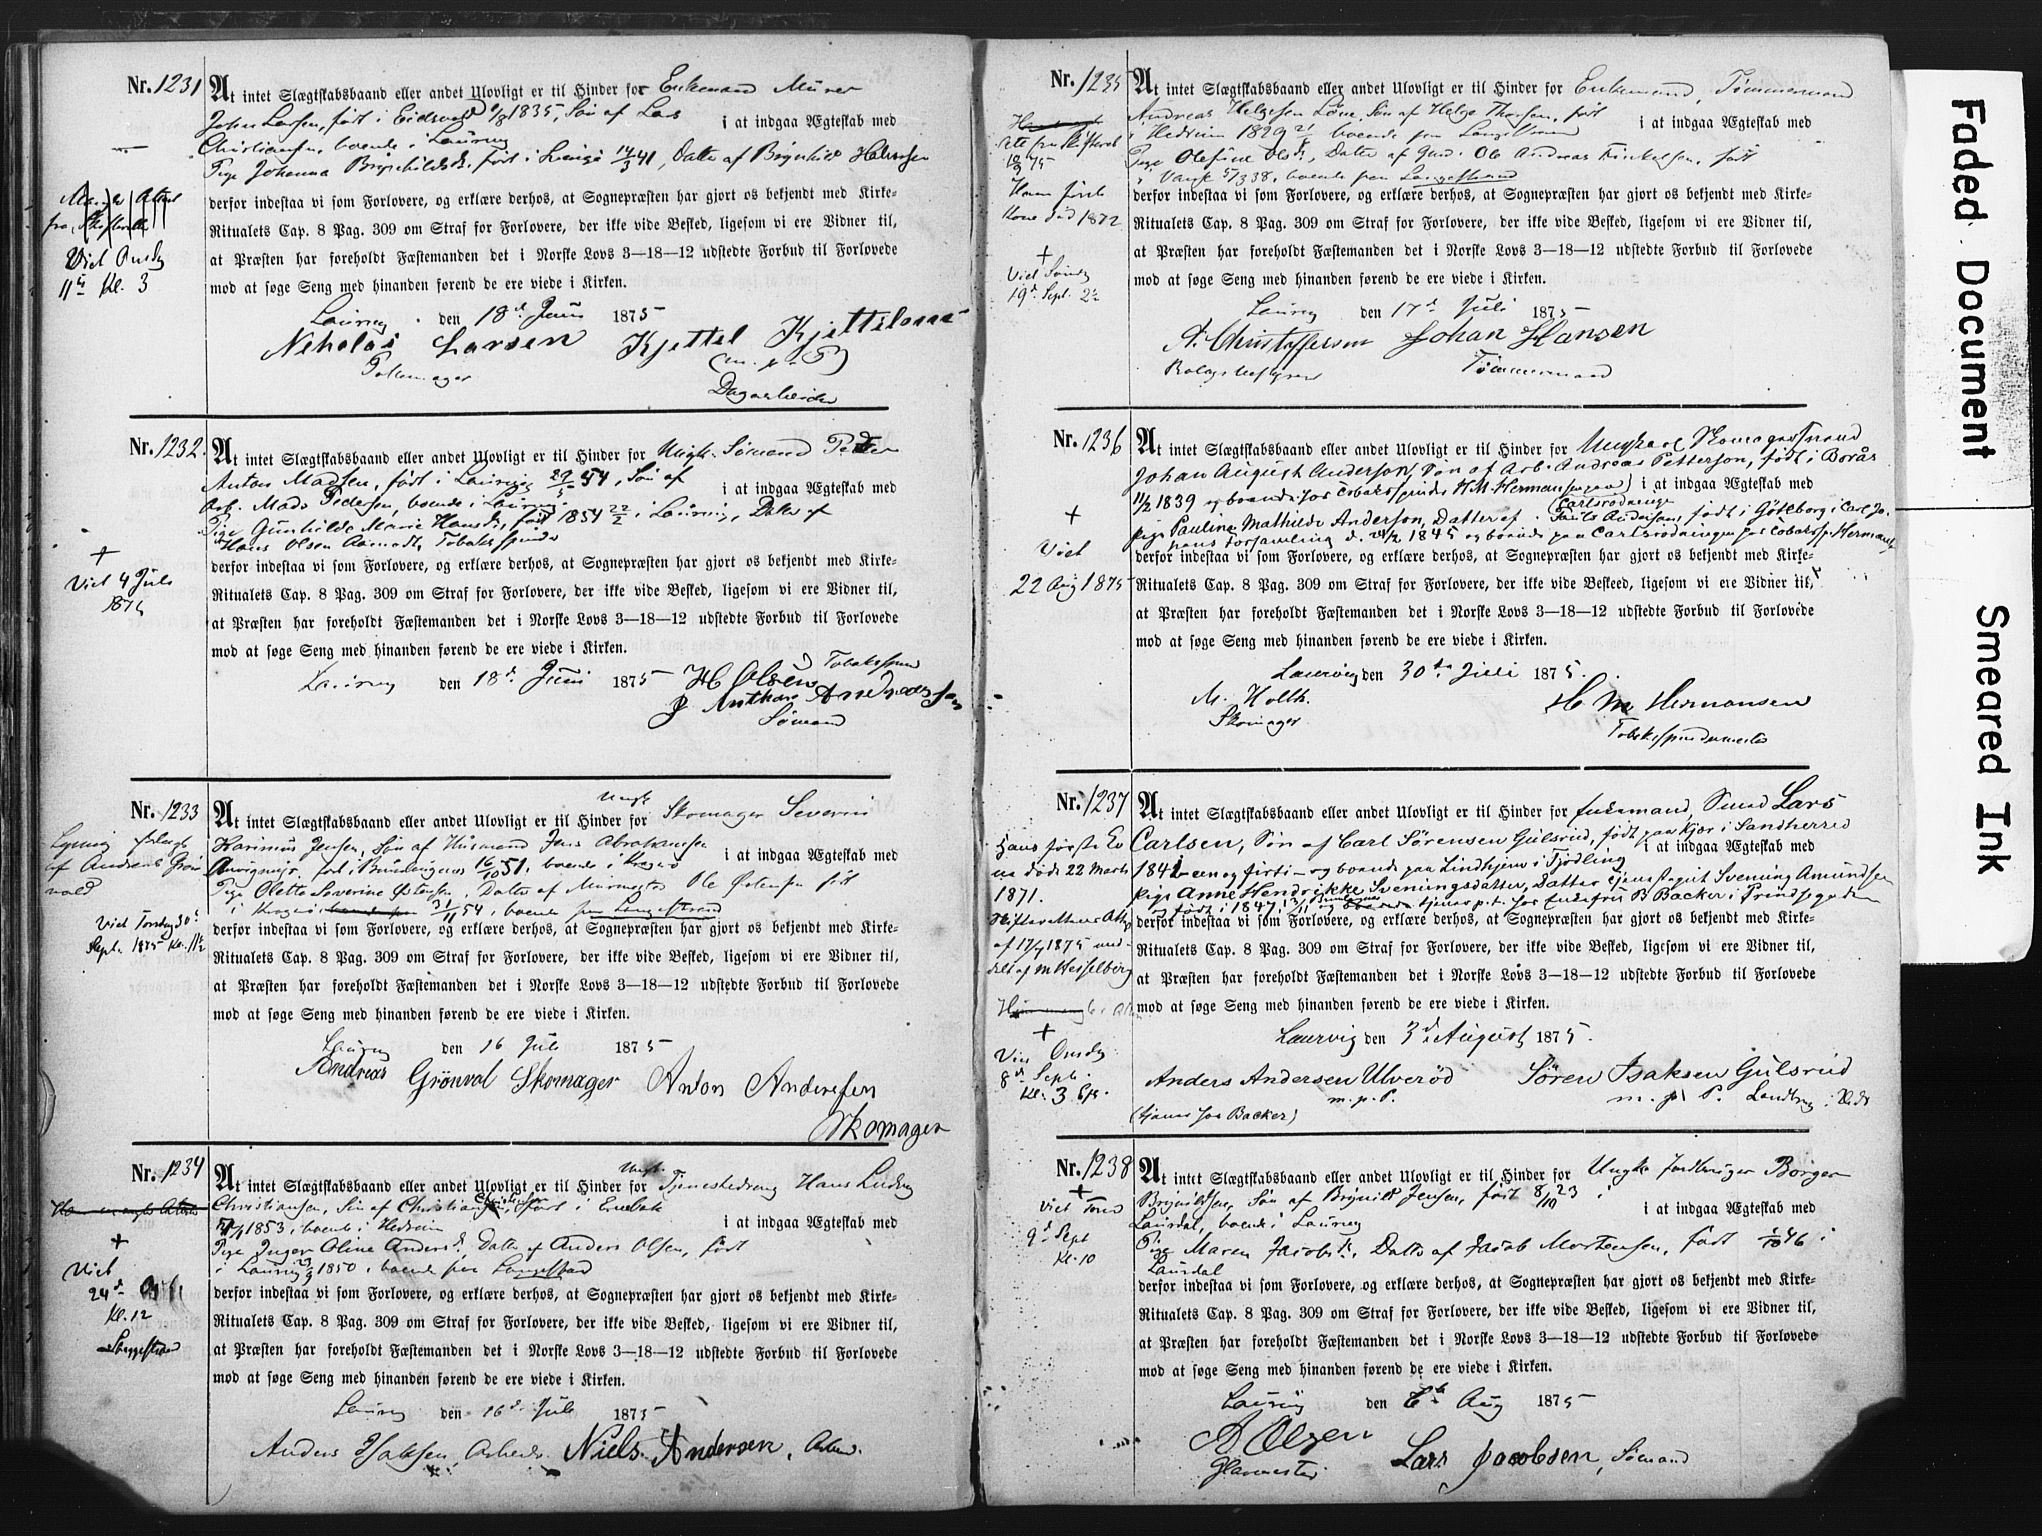 Nr. 1231
At intet Slægtskabsbaand eller andet Ulovligt er til Hinder for Enkemand Murer
John Larsen, født i Eidsvold 1835, Søn af Lars
i at indgaa Ægteskab med
Christiansen, boende i Laurvig
Pige Johanna Brynhildsd. født i 41, Datter af Halvorsen
derfor indestaa vi som Forlovere, og erklære derhos, at Sognepræsten har gjort os bekjendt med Kirke-
Ritualets Cap. 8 Pag. 309 om Straf for Forlovere, der ikke vide Besked, ligesom vi ere Vidner til,
at Præsten har foreholdt Fæstemanden det i Norske Lovs 3—18—12 udstedte Forbud til Forlovede
mod at søge Seng med hinanden førend de ere viede i Kirken.
Viet Onsdg
11te Kl. 3
Laurvig den 18d Juni 1875
Nikolas Larsen Kjettel Kjettelsen
(m. p. P)
Dagarbeider
Nr. 1232.
At intet Slægtskabsbaand eller andet Ulovligt er til Hinder for Ungk. Sømand Peder
Anton Madsen, født i Laurvig 29/5 54, Søn af
i at indgaa Ægteskab med
Arb. Mads Pedersen, boende i Laurvig
Pige Gunhilde Marie Hansd., født 1854 22/2 i Laurvig, Datter af
Hans Olsen Tobaksspinder
derfor indestaa vi som Forlovere, og erklære derhos, at Sognepræsten har gjort os bekjendt med Kirke-
Ritualets Cap. 8 Pag. 309 om Straf for Forlovere, der ikke vide Besked, ligesom vi ere Vidner til,
at Præsten har foreholdt Fæstemanden det i Norske Lovs 3—18—12 udstedte Forbud til Forlovede
mod at søge Seng med hinanden førend de ere viede i Kirken.
+
Viet 4 Juli
Laurvig den 18d. Juni 1875 H Olsen Tobaksspind
J Anthon Andreassen
Sømand
Nr. 1233
At intet Slægtskabsbaand eller andet Ulovligt er til Hinder for Ungk Skomager Severin
Jensen, Søn af Husmand Jens Abrahamsen
i at indgaa Ægteskab med
født i 16/10 51, boende i Kragerø
Pige Olette Severine Østensen, Datter af Murmester Ole Østensen født
i Kragerø 31/11 54, boende paa Langestrand
derfor indestaa vi som Forlovere, og erklære derhos, at Sognepræsten har gjort os bekjendt med Kirke-
Ritualets Cap. 8 Pag. 309 om Straf for Forlovere, der ikke vide Besked, ligesom vi ere Vidner til,
at Præsten har foreholdt Fæstemanden det i Norske Lovs 3—18—12 udstedte Forbud til Forlovede
mod at søge Seng med hinanden førend de ere viede i Kirken.
af Andreas Grön
vold
Viet Torsdag 30te
Sept. 1875 Kl. 11½
Laurvig den 16 Juli 1875
Andreas Grönvol Skomager Anton Andersen
Skomager
Nr. 1234
At intet Slægtskabsbaand eller andet Ulovligt er til Hinder for Ungk. Tjenestedreng Hans Ludvig
Christiansen, Søn af Christian født i Enebak
i at indgaa Ægteskab med
1853, boende i Hedrum
Pige Inger Oline Andersd., Datter af Anders Olsen, født
i Laurvig 1850, boende paa Langestrand
derfor indestaa vi som Forlovere, og erklære derhos, at Sognepræsten har gjort os bekjendt med Kirke-
Ritualets Cap. 8 Pag. 309 om Straf for Forlovere, der ikke vide Besked, ligesom vi ere Vidner til,
at Præsten har foreholdt Fæstemanden det i Norske Lovs 3—18—12 udstedte Forbud til Forlovede
mod at søge Seng med hinanden førend de ere viede i Kirken.
+
Viet
24de
Kl. 12
Laurvig den 16d. Juli 1875
Anders Isaksen, Arbeider Niels Andersen, Arbeid.
Nr. 1235
At intet Slægtskabsbaand eller andet Ulovligt er til Hinder for Enkemand, Tømmermand
Andreas Helgesen Løne, Søn af Helge Thorsen, født
i at indgaa Ægteskab med
i Hedrum 1829 21/5 boende paa Langestrand
Pige Olefine Olsd., Datter af Gmd. Ole Andreas født
i 5/3 38, boende paa Langestrand
derfor indestaa vi som Forlovere, og erklære derhos, at Sognepræsten har gjort os bekjendt med Kirke-
Ritualets Cap. 8 Pag. 309 om Straf for Forlovere, der ikke vide Besked, ligesom vi ere Vidner til,
at Præsten har foreholdt Fæstemanden det i Norske Lovs 3—18—12 udstedte Forbud til Forlovede
mod at søge Seng med hinanden førend de ere viede i Kirken.
Hans første
Kone død 1872
+
Viet Søndg
19d Sept. 2½
Laurvig den 17d Juli 1875
A. Christoffersen Johan Hansen
Tømmermand
Nr. 1236
At intet Slægtskabsbaand eller andet Ulovligt er til Hinder for Ungkarl Skomagersvend
Johan August Anderson, Søn af Arb. Andreas Petterson, født i Borås
11/2 1839 og boende hos Tobaksspinder H.M. Hermansen i at indgaa Ægteskab med
pige Pauline Mathilde Anderson, Datter af Carlsrodningen Anderson, født i Göteborg i Carl Jo-
hans Forsamling d. 24/2 1845 og boende paa Carlsrodningen hos Tobakssp. Hermansen
derfor indestaa vi som Forlovere, og erklære derhos, at Sognepræsten har gjort os bekjendt med Kirke-
Ritualets Cap. 8 Pag. 309 om Straf for Forlovere, der ikke vide Beskeed, ligesom vi ere Vidner til,
at Præsten har foreholdt Fæstemanden det i Norske Lovs 3—18—12 udstedte Forbud til Forlovede
mod at søge Seng med hinanden førend de ere viede i Kirken.
+
Viet
22 Aug 1875
Laurvig den 30te Juli 1875.
M. Holth. H M Hermansen
Skomager Tobaksspindermester
Nr. 1237
At intet Slægtskabsbaand eller andet Ulovligt er til Hinder for Enkemand, Smed Lars
Carlsen, Søn af Carl Sörensen Gulsrud, født paa Kjør i Sandherred
i at indgaa Ægteskab med
1841 – een og firti – og boende paa Lindhjem i Tjödling
pige Anne Hendrikke Sveningsdatter, Datter af Svening Amundsen
født i 1847, tjener p.t. hos Enkefru B Backer i Prindsegaden
derfor indestaa vi som Forlovere, og erklære derhos, at Sognepræsten har gjort os bekjendt med Kirke-
Ritualets Cap. 8 Pag. 309 om Straf for Forlovere, der ikke vide Besked, ligesom vi ere Vidner til,
at Præsten har foreholdt Fæstemanden det i Norske Lovs 3—18—12 udstedte Forbud til Forlovede
mod at søge Seng med hinanden førend de ere viede i Kirken.
Hans første Ko
ne døde 22 Marts
1871.
Skifterettens Attest
af 17/7 1875 med-
delt af M Hesselberg
+
Viet Onsdg
8de Sept.
Kl. 3
Laurvig den 3d. August 1875.
Anders Andersen Ulveröd Sören Isaksen Gulsrud
m. p. P. m. p. P.
(tjener hos Backer)
Nr. 1238
At intet Slægtskabsbaand eller andet Ulovligt er til Hinder for Ungk Jordbruger Borger
Brynildsen, Søn af Brynild Jensen, født 8/10 23 i
i at indgaa Ægteskab med
Laurdal, boende i Laurvig
Pige Maren Jacobsd., Datter af Jacob Mortensen, født 1/10 46 i
Laurdal
derfor indestaa vi som Forlovere, og erklære derhos, at Sognepræsten har gjort os bekjendt med Kirke-
Ritualets Cap. 8 Pag. 309 om Straf for Forlovere, der ikke vide Besked, ligesom vi ere Vidner til,
at Præsten har foreholdt Fæstemanden det i Norske Lovs 3—18—12 udstedte Forbud til Forlovede
mod at søge Seng med hinanden førend de ere viede i Kirken.
+
Viet
9d Sept
Kl. 10
Laurvig den 6te Aug 1875
A Olsen Lars Jacobsen, Sömand
Glarmester
Faded Document
Smeared Ink